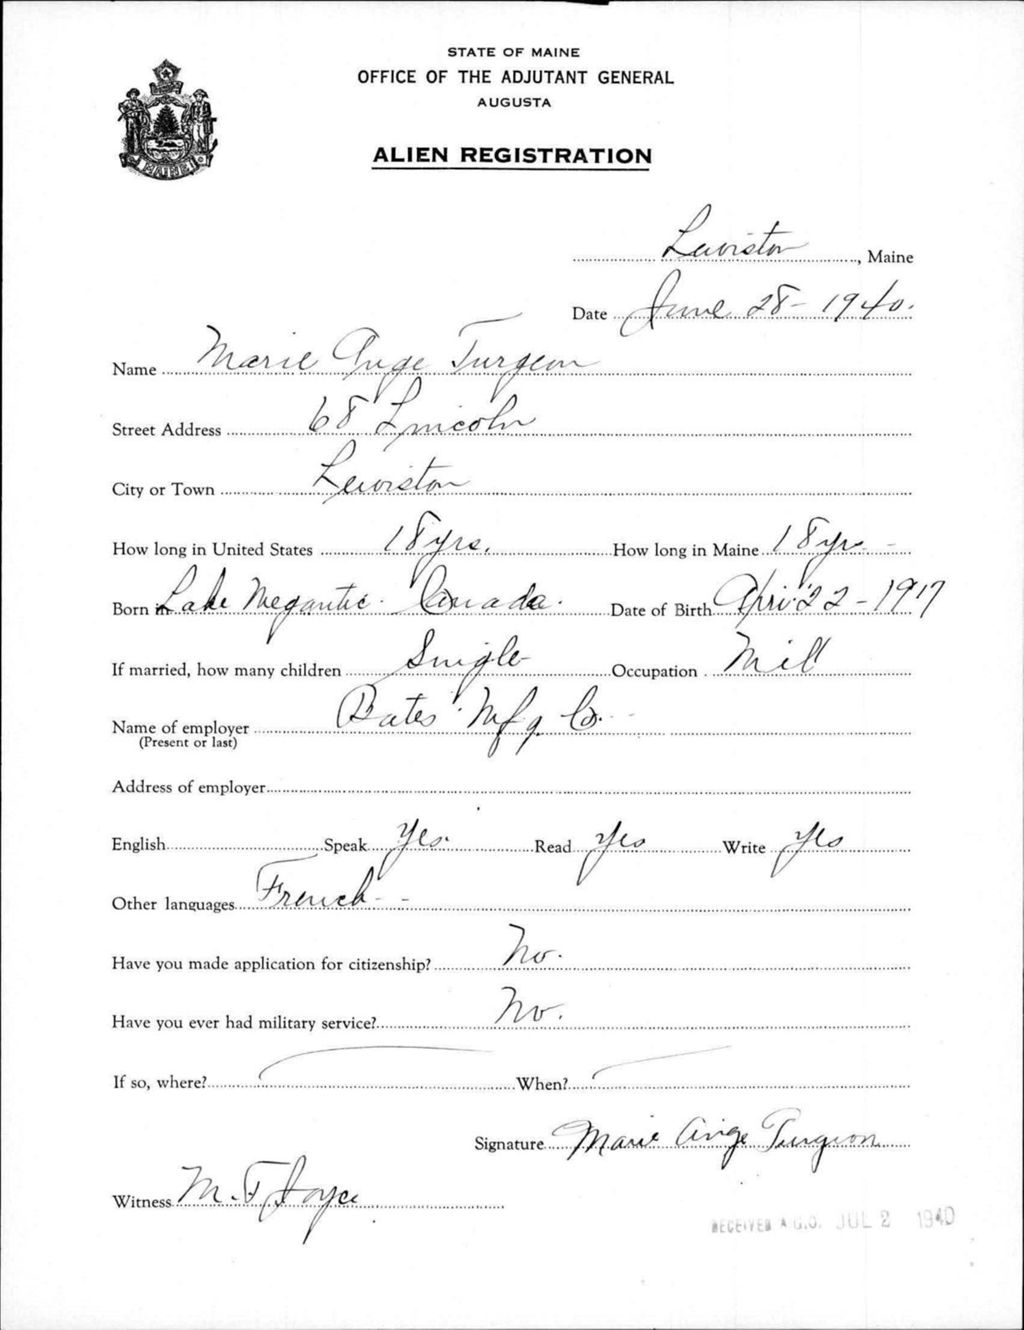 STATE OF MAINE
OFFICE OF THE ADJUTANT GENERAL
AUGUSTA
ALIEN REGISTRATION
MAINE
Lewiston, Maine
Date June 28 - 1940.
Name Marie Ange Turgeon
Street Address 68 Lincoln
City or Town Lewiston
How long in United States 18 yrs. How long in Maine 18 yr -
Born in Lake Megantic. Canada. Date of Birth April 22 - 1917
If married, how many children Single Occupation Mill
Name of employer Bates Mfg. Co. -
(Present or last)
Address of employer
English Speak Yes. Read Yes Write Yes
Other languages French - -
Have you made application for citizenship? No.
Have you ever had military service? No.
If so, where? When?
Signature Marie Ange Turgeon
Witness M. F. Joyce
RECEIVED A.G.O. JUL 2 1940